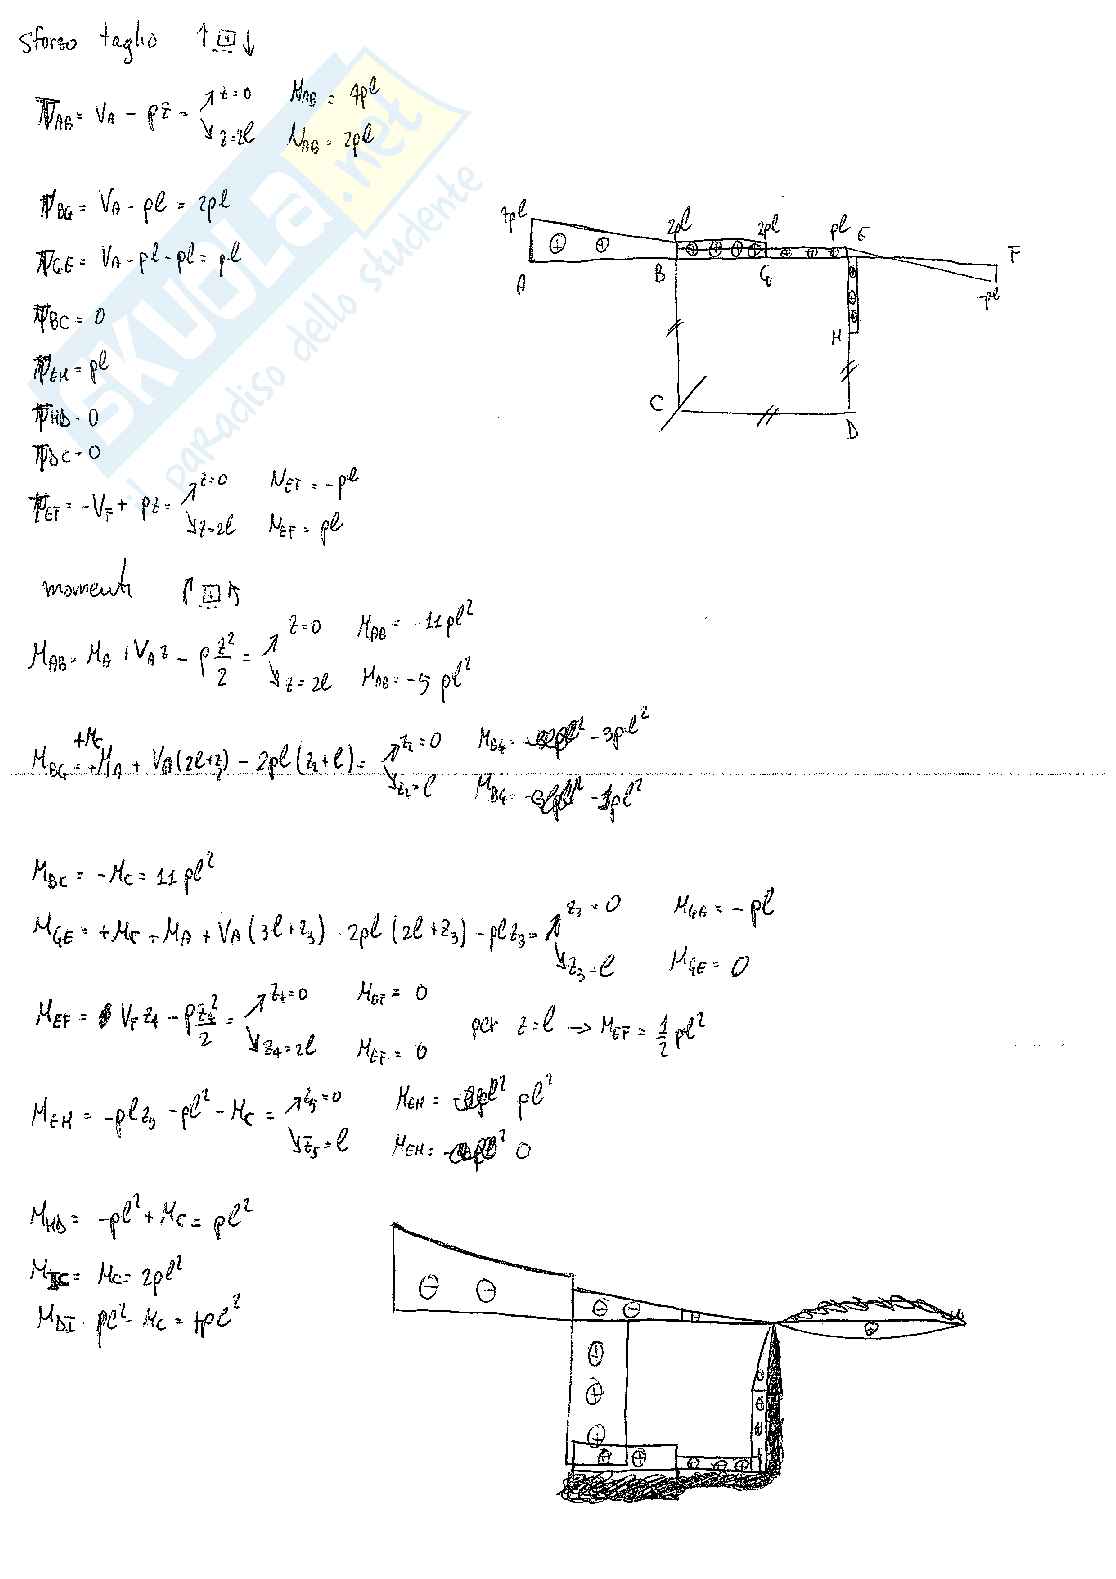 sforzo taglio
T_AB = V_A - pz = z=0 M_AB = 4pl
z=2l N_AB = 2pl
T_BG = V_A - pl = 2pl
T_GE = V_A - pl - pl = pl
T_BC = 0
T_EH = pl
T_HD = 0
T_DC = 0
T_EF = -V_F + pz = z=0 N_EF = -pl
z=2l N_EF = pl
2pl 2pl 2pl pl E F
A B G -pl
H
C D
momenti
M_AB = M_A + V_A z - p z²/2 = z=0 M_AB = -11pl²
z=2l M_AB = -5pl²
+M_C
M_BG = +M_A + V_A(2l+z_2) - 2pl(z_2+l) = z_2=0 M_BG = -3pl²
z_2=l M_BG = -1pl²
M_BC = -M_C = 11pl²
M_GE = +M_C - M_A + V_A(3l+z_3) - 2pl(2l+z_3) - plz_3 = z_3=0 M_GE = -pl
z_3=l M_GE = 0
M_EF = V_F z_4 - p z_4²/2 = z_4=0 M_EF = 0
z_4=2l M_EF = 0
per z=l → M_EF = 1/2 pl²
M_EH = -plz_5 - pl² - M_C = z_5=0 M_EH = pl²
z_5=l M_EH = 0
M_HD = -pl² + M_C = pl²
M_IC = M_C = 2pl²
M_DI = pl² - M_C = +pl²
SKUOLA.net
il paradiso dello studente